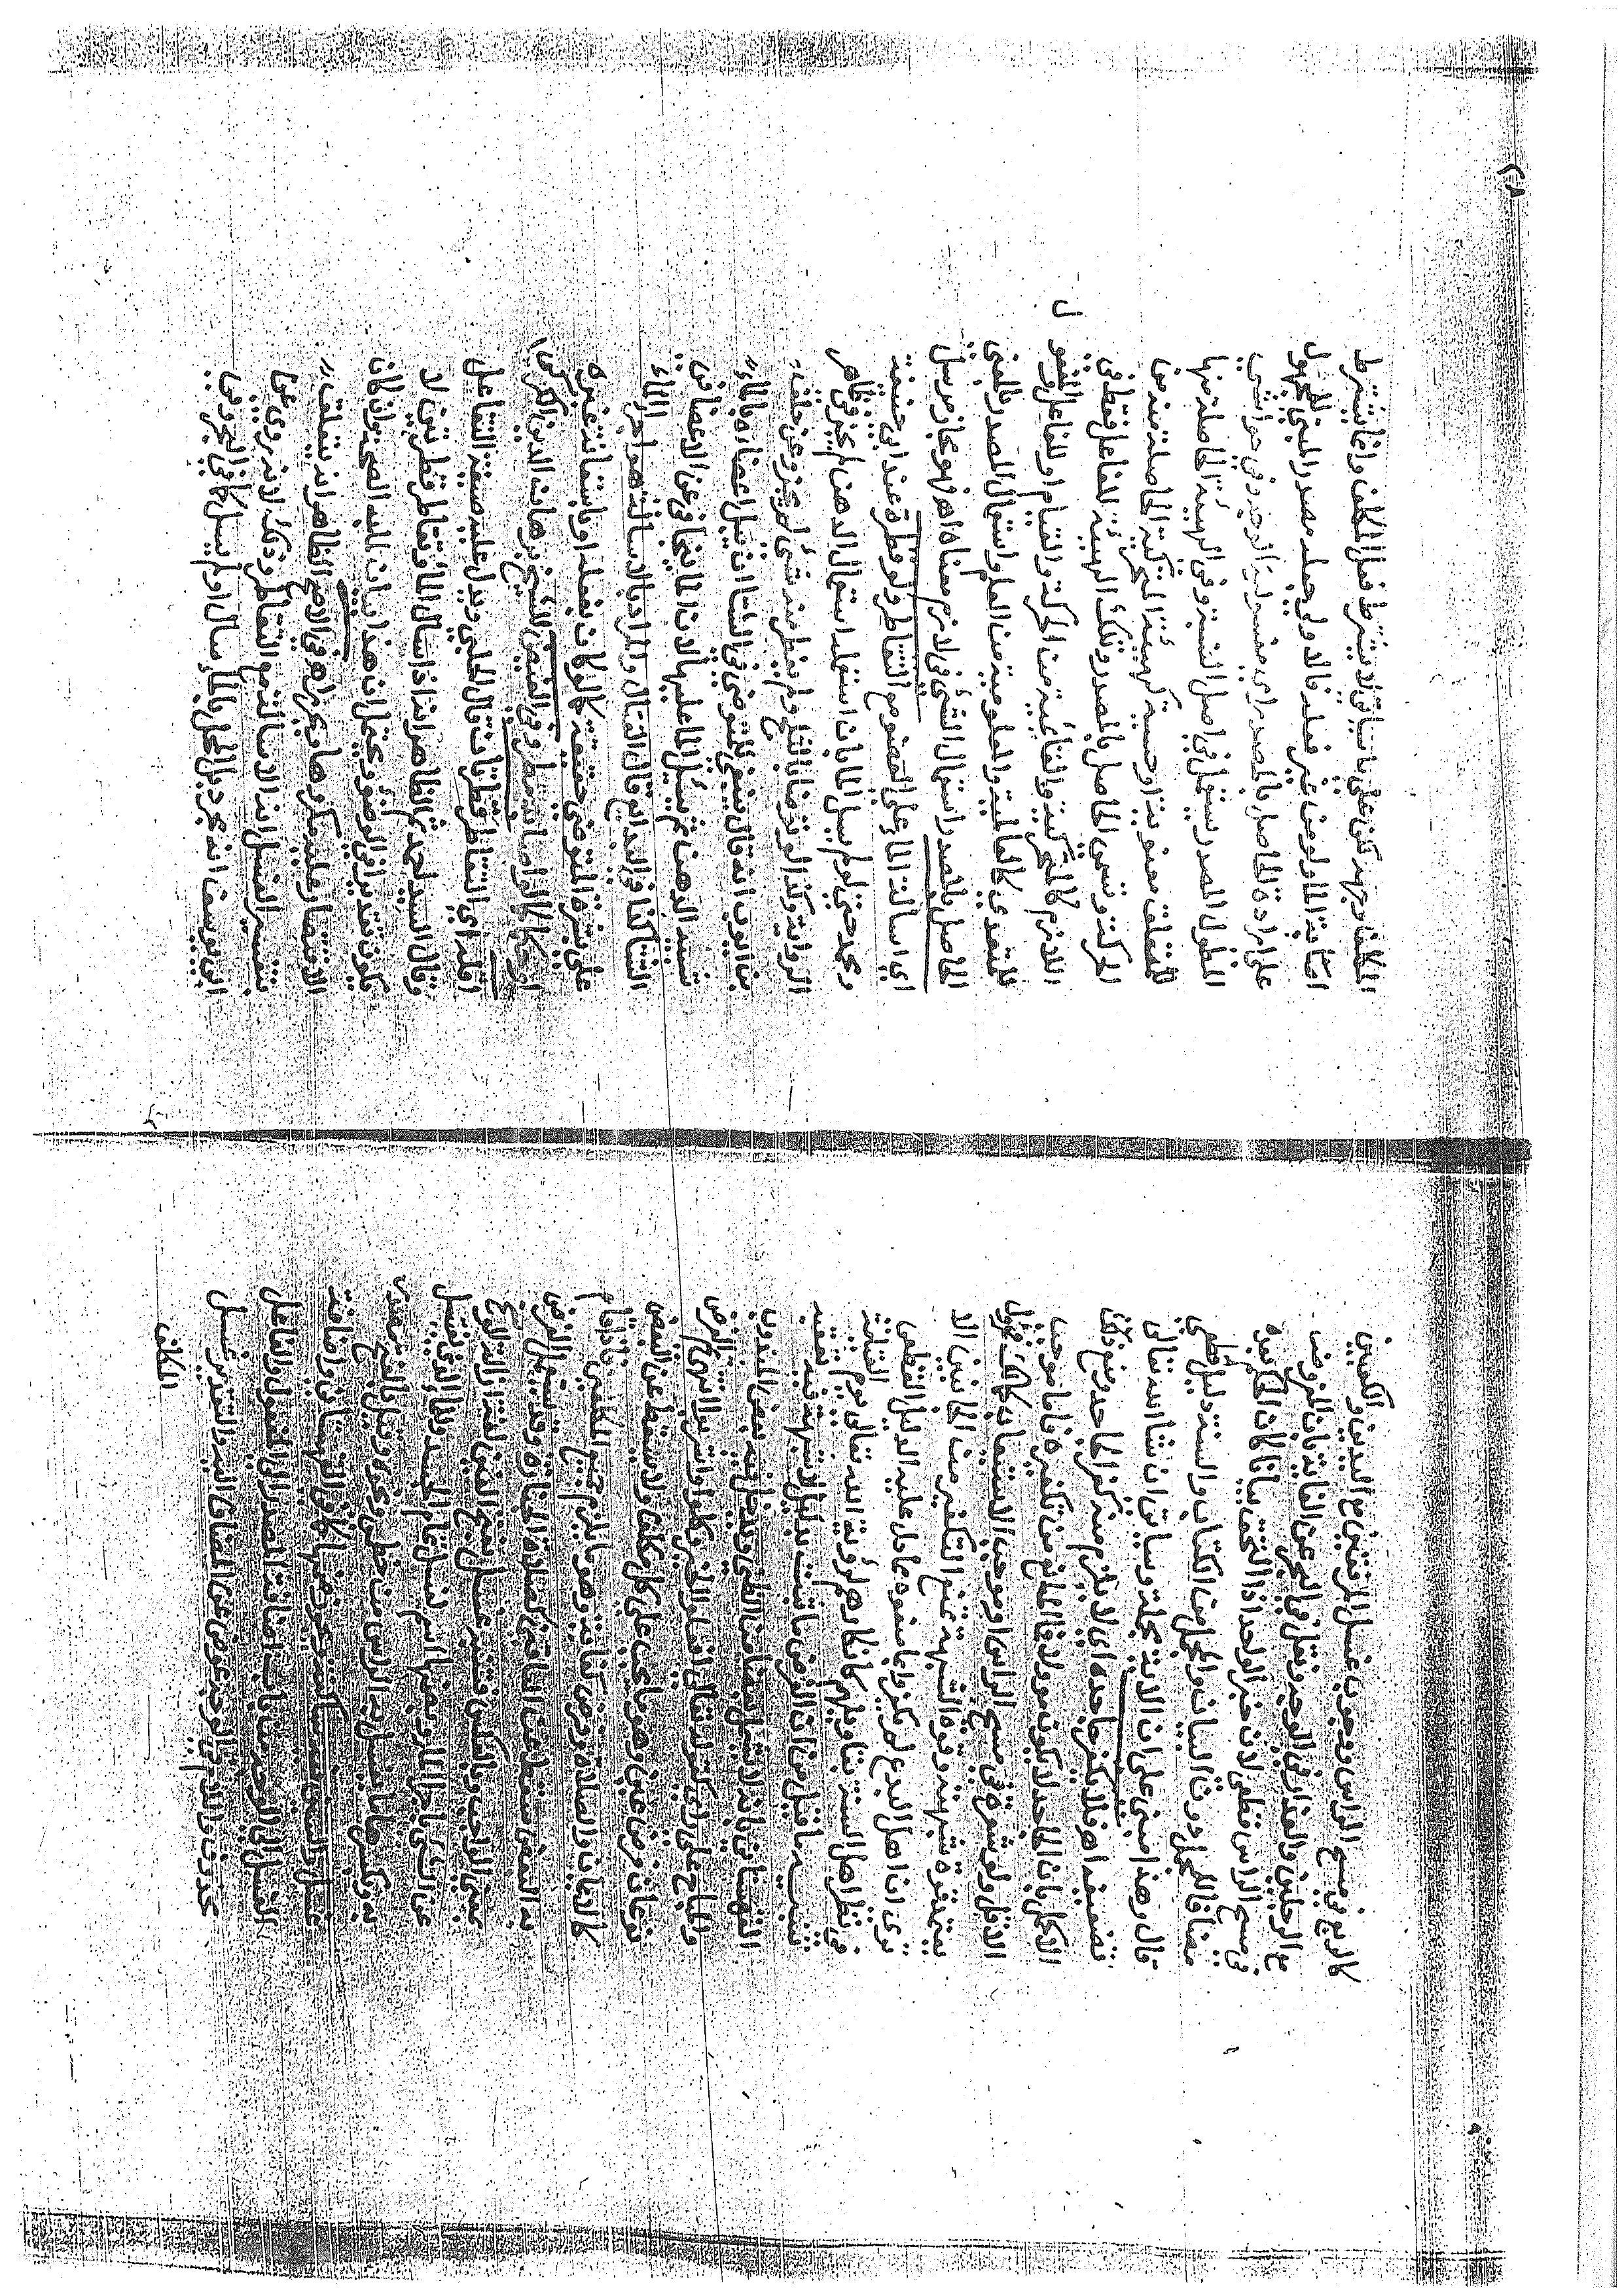 ٢٨
كالربع في مسح الراس ووجوب غسل المرفقين مع اليدين والكعبين
مع الرجلين والعذار في الوجه ونقل في البحر عن الغاية بان المفروض
في مسح الراس قطعي لان خبر الواحد اذا التحق بيانا كان الحكم بعده
مضافا للمجمل دون البيان والمجمل من الكتاب والسنة دليل قطعي
قال وهذا مبني على ان الاية مجملة وسياتي ان شاء الله تعالى
تضعيفه اه فلا يكفر جاحده اي لا يلزم منه كفر الجاحد ومنع ذلك
الاكمل بان الجاحد لا يكون موولا فالمانع من تكفيره فاما موجب
الاقل ولو شعرة في مسح الراس او موجب الاستيعاب كمالك فموول
قوة شبهته وقوة الشبهة تمنع التكفير من الجانبين الا
ترى ان اهل البدع لم يكفروا بما منعوه مما دل عليه الدليل القطعي
في نظر اهل السنة بتاويلهم كانكارهم لرؤية الله تعالى يوم القيامة
تنبيه ما قيل من ان الفرض ما ثبت بدليل لا شبهة فيه تعقبه
القهستاني بانه لا يشمل بعضا من الظني ويدخل فيه بعض المندوب
والمباح على كقوله تعالى افعلوا الخير وكلوا واشربوا انتهى ثم الفرض
نوعان فرض عين وهو ما يجب على كل مكلف ولا يسقط عن البعض
كالايمان والصلاة وفرض كفاية وهو ما يلزم جميع المكلفين فاذا قام
به البعض سقط عن الباقين كصلاة الجنازة وقد يستعمل الفرض
بمعنى الواجب وبالعكس غسل بفتح الغين لغة ازالة الوسخ
عن الشي باجراء الماء وبضمها اسم لغسل تمام الجسد وللماء الذي يغتسل
به وبكسرها ما يغسل به الراس من خطمي ونحوه وقيل بالفتح مصدر
غسل كما في القهستاني واضافة
الغسل الى الوجه من باب اضافة المصدر الى المفعول والفاعل
محذوف واللام في الوجه عوض عن المضاف اليه والتقدير غسل
المكلف
المكلف وجهه لكن على ما سياتي لا يشترط فعل المكلف وانما يشترط
اصابة الماء ولو من غير فعله فالاولى جعله مصدر المبني للمجهول
على ارادة الحاصل بالمصدر اي مغسولية الوجه وفي حواشي
المطول المصدر يستعمل في اصل النسبة وفي الهيئة الحاصلة منها
للمتعلق معنوية او حسية كهيئة المتحركية الحاصلة من
الحركة وتسمى الحاصل بالمصدر وتلك الهيئة للفاعل فقط في
اللازم كالمتحركية والقائمية من الحركة والقيام او للفاعل والمفعول
للمتعدي كالعالمية والمعلومية من العلم واستعمال المصدر بالمعنى
الحاصل بالمصدر استعمال الشئ في لازم معناه اه فهو مجاز مرسل
اي اسالة الماء على العضو مع التقاطر ولو قطرة عند ابي حنيفة
ومحمد حتى لو لم يسل الماء بان استعمله استعمال الدهن لم يجز في ظاهر
الرواية وكذا لو توضا بالثلج ولم يقطر منه شئ لم يجز وعن خلف
بن ايوب انه قال ينبغي للمتوضي في الشتاء ان يبل اعضاءه بالماء
شبه الدهن ثم يسيل الماء عليها لان الماء يتجافى عن الاعضاء في
الشتاء كذا في البدايع قال والمراد بالاسالة هو اجراء الماء
على بشرة المتوضي حقيقة كالو كان بفعله او باستعانة غيره
او حكما كالو اصابه مطر وفي الفيض للشيخ برهان الدين الكركي
اقله اي التقاطر قطرتان قال الحلبي ويدل عليه صيغة التفاعل
وقال السيد احمد الظاهر انه اذا سال الماء وتقاطر قطرتين لا
يكون تقديرا في الوضوء ويحتمل ان هذا بيان للحد وان كان
الاقتصار عليه مكروها في الاصح الظاهر انه يتعلق
بتفسير الغسل انه الاسالة مع التقاطر وذلك لانه روي عن
ابي يوسف انه مجرد بل المحل بالماء سال او لم يسل كما في البحر وفي